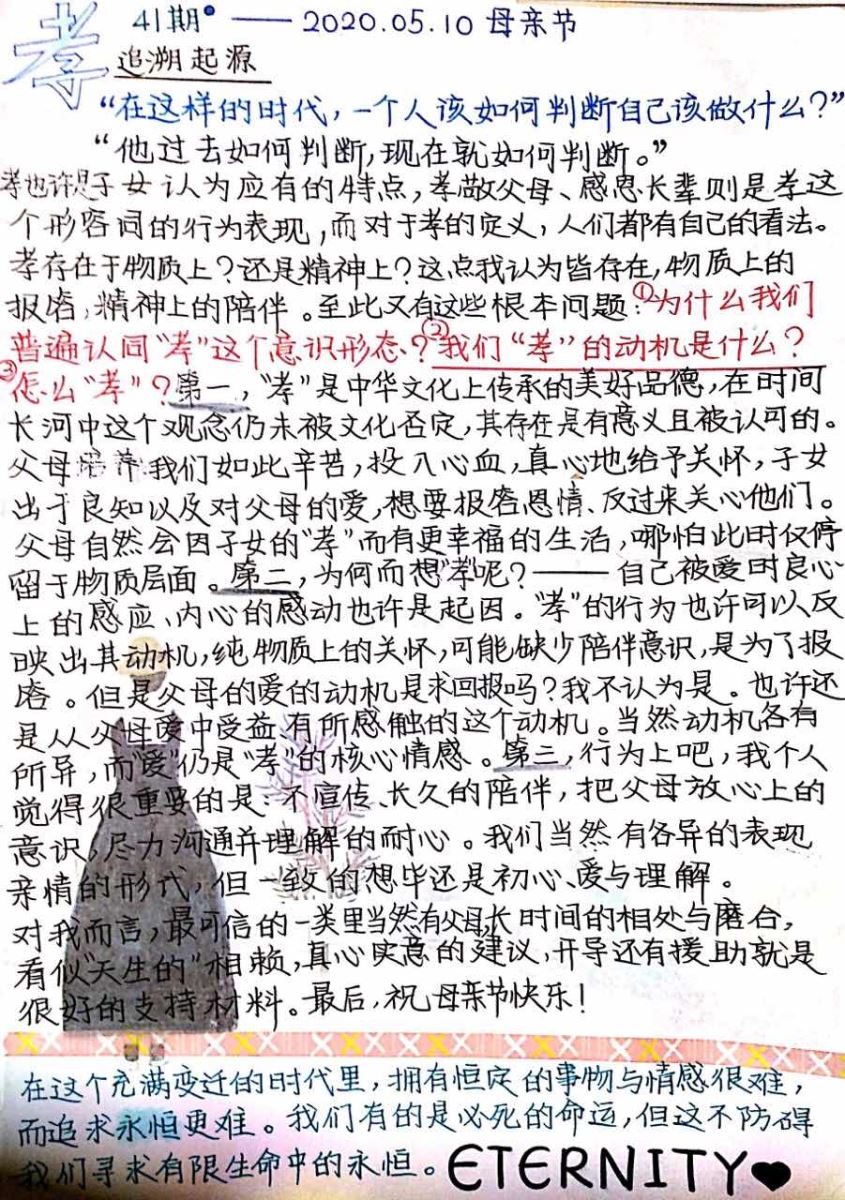 孝 41期 —— 2020.05.10 母亲节
追溯起源
“在这样的时代，一个人该如何判断自己该做什么？”
“他过去如何判断，现在就如何判断。”
孝也许是子女认为应有的特点，孝敬父母、感恩长辈则是孝这
个形容词的行为表现，而对于孝的定义，人们都有自己的看法。
孝存在于物质上？还是精神上？这点我认为皆存在，物质上的
报答，精神上的陪伴。至此又有这些根本问题：①为什么我们
普遍认同“孝”这个意识形态？②我们“孝”的动机是什么？
③怎么“孝”？第一，“孝”是中华文化上传承的美好品德，在时间
长河中这个观念仍未被文化否定，其存在是有意义且被认可的。
父母培养我们如此辛苦，投入心血，真心地给予关怀，子女
出于良知以及对父母的爱，想要报答恩情、反过来关心他们。
父母自然会因子女的“孝”而有更幸福的生活，哪怕此时仅停
留于物质层面。第二，为何而想“孝”呢？——自己被爱时良心
上的感应、内心的感动也许是起因。“孝”的行为也许可以反
映出其动机，纯物质上的关怀，可能缺少陪伴意识，是为了报
答。但是父母的爱的动机是求回报吗？我不认为是。也许还
是从父母爱中受益、有所感触的这个动机。当然动机各有
所异，而“爱”仍是“孝”的核心情感。第三，行为上吧，我个人
觉得很重要的是：不宣传、长久的陪伴，把父母放心上的
意识，尽力沟通并理解的耐心。我们当然有各异的表现
亲情的形式，但一致的想毕还是初心、爱与理解。
对我而言，最可信的一类里当然有父母，长时间的相处与磨合，
看似“天生的”相赖，真心实意的建议，开导还有援助就是
很好的支持材料。最后，祝母亲节快乐！
在这个充满变迁的时代里，拥有恒定的事物与情感很难，
而追求永恒更难。我们有的是必死的命运，但这不防碍
我们寻求有限生命中的永恒。ETERNITY♥